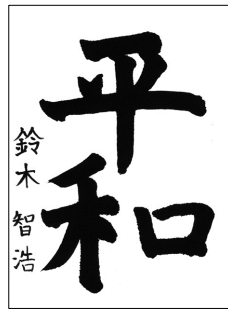 平和
鈴木 智浩